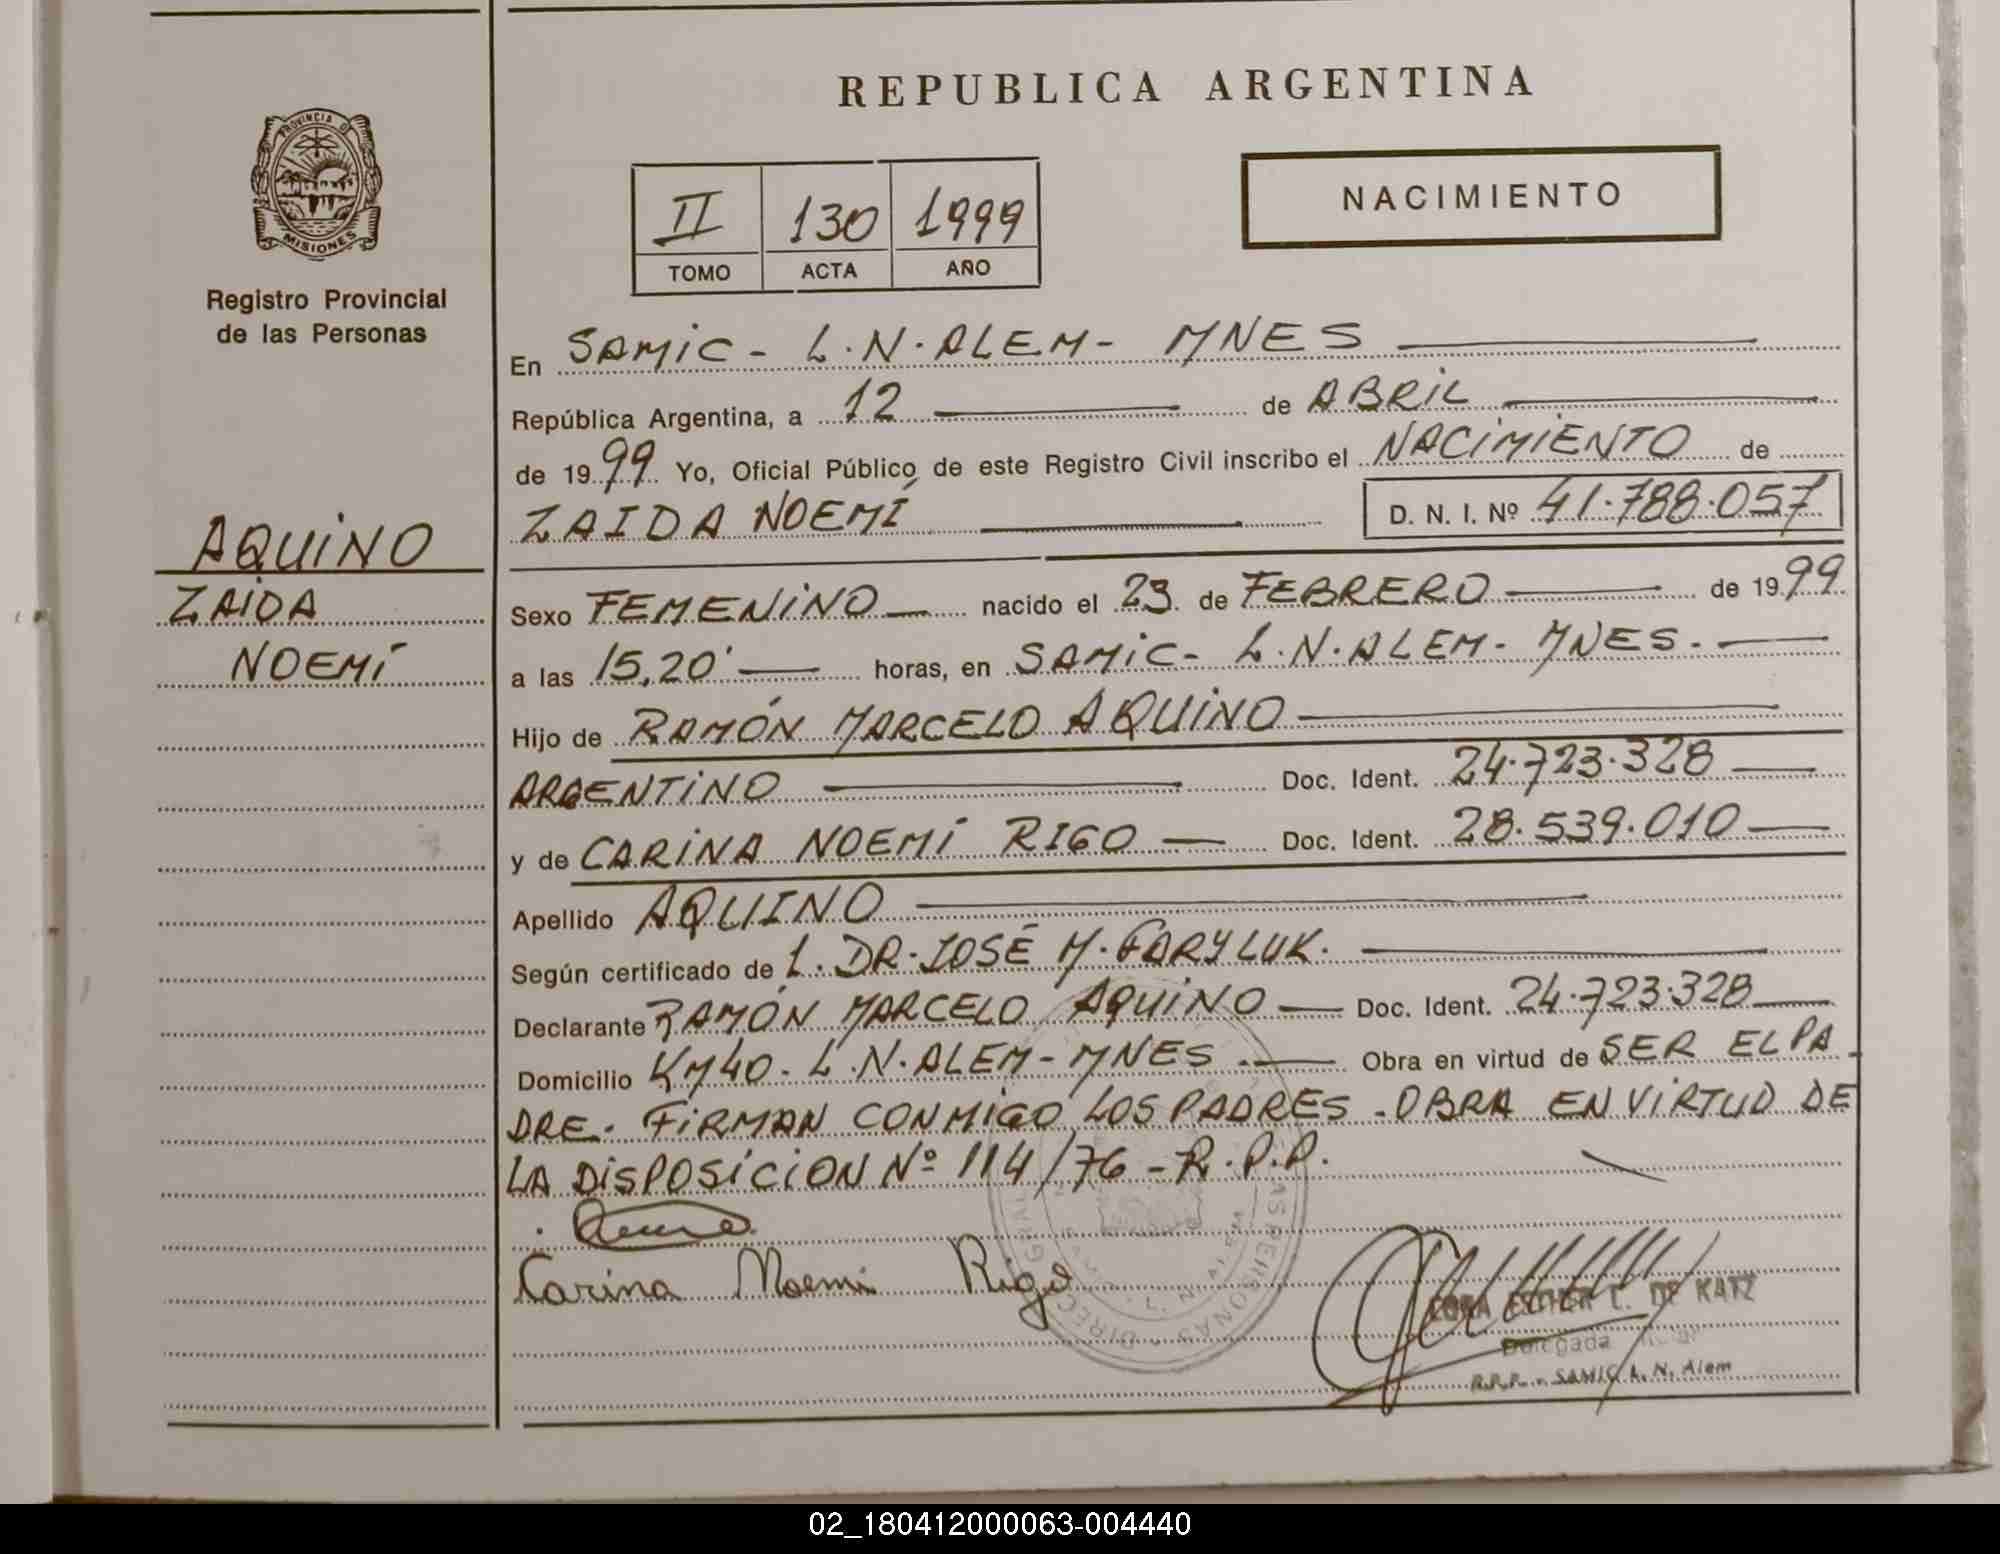 REPUBLICA ARGENTINA
PROVINCIA DE
MISIONES
Registro Provincial
de las Personas
II 130 1999
TOMO ACTA AÑO
NACIMIENTO
En SAMIC - L.N. ALEM - MNES
República Argentina, a 12 de ABRIL
de 1999 Yo, Oficial Público de este Registro Civil inscribo el NACIMIENTO de
ZAIDA NOEMÍ D. N. I. Nº 41.788.057
AQUINO
ZAIDA
NOEMÍ
Sexo FEMENINO nacido el 23 de FEBRERO de 1999
a las 15,20' horas, en SAMIC - L.N. ALEM - MNES.
Hijo de RAMÓN MARCELO AQUINO
ARGENTINO Doc. Ident. 24.723.328
y de CARINA NOEMÍ RIGO Doc. Ident. 28.539.010
Apellido AQUINO
Según certificado de L. DR. JOSÉ M. FARYLUK.
Declarante RAMÓN MARCELO AQUINO Doc. Ident. 24.723.328
Domicilio KM 40 - L.N. ALEM - MNES. Obra en virtud de SER EL PA
DRE. FIRMAN CONMIGO LOS PADRES. OBRA EN VIRTUD DE
LA DISPOSICION Nº 114/76 - R.P.P.
Carina Noemi Rigo
DE KATZ
Delegada
R.P.P. - SAMIC L. N. Alem
02_180412000063-004440